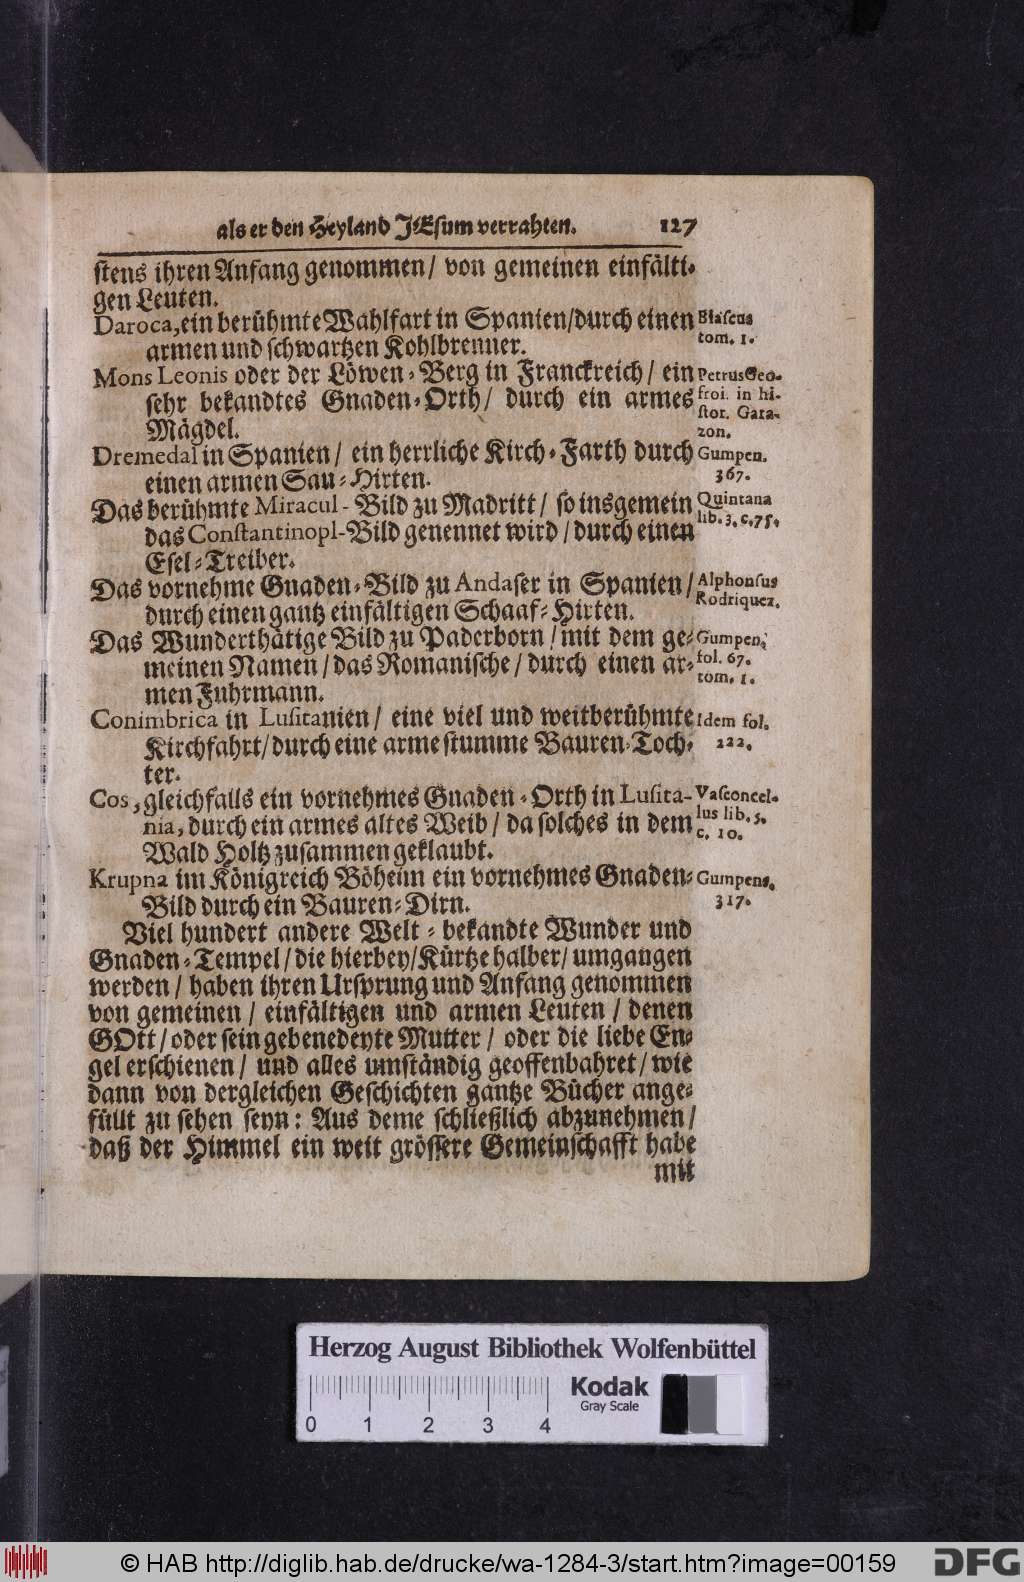 als er den Heyland JEsum verrahten. 127
stens ihren Anfang genommen / von gemeinen einfälti-
gen Leuten.
Daroca, ein berühmte Wahlfart in Spanien / durch einen
armen und schwartzen Kohlbrenner.
Blascus
tom. 1.
Mons Leonis oder der Löwen-Berg in Franckreich / ein
sehr bekandtes Gnaden-Orth / durch ein armes
Mägdel.
Petrus Geo-
froi. in hi-
stor. Gara-
zon.
Dremedal in Spanien / ein herrliche Kirch-Farth durch
einen armen Sau-Hirten.
Gumpen.
367.
Das berühmte Miracul-Bild zu Madritt / so insgemein
das Constantinopl-Bild genennet wird / durch einen
Esel-Treiber.
Quintana
lib. 3. c. 75.
Das vornehme Gnaden-Bild zu Andaser in Spanien /
durch einen gantz einfältigen Schaaf-Hirten.
Alphonsus
Rodriquez.
Das Wunderthätige Bild zu Paderborn / mit dem ge-
meinen Namen / das Romanische / durch einen ar-
men Fuhrmann.
Gumpen.
fol. 67.
tom. 1.
Conimbrica in Lusitanien / eine viel und weitberühmte
Kirchfahrt / durch eine arme stumme Bauren-Toch-
ter.
Idem fol.
222.
Cos, gleichfalls ein vornehmes Gnaden-Orth in Lusita-
nia, durch ein armes altes Weib / da solches in dem
Wald Holtz zusammen geklaubt.
Vasconcel-
lus lib. 5.
c. 10.
Krupna im Königreich Böheim ein vornehmes Gnaden-
Bild durch ein Bauren-Dirn.
Gumpens.
317.
Viel hundert andere Welt-bekandte Wunder und
Gnaden-Tempel / die hierbey / Kürtze halber / umgangen
werden / haben ihren Ursprung und Anfang genommen
von gemeinen / einfältigen und armen Leuten / denen
GOtt / oder sein gebenedeyte Mutter / oder die liebe En-
gel erschienen / und alles umständig geoffenbahret / wie
dann von dergleichen Geschichten gantze Bücher ange-
füllt zu sehen seyn: Aus deme schließlich abzunehmen /
daß der Himmel ein weit grössere Gemeinschafft habe
mit
Herzog August Bibliothek Wolfenbüttel
0 1 2 3 4
Kodak
Gray Scale
© HAB http://diglib.hab.de/drucke/wa-1284-3/start.htm?image=00159
DFG